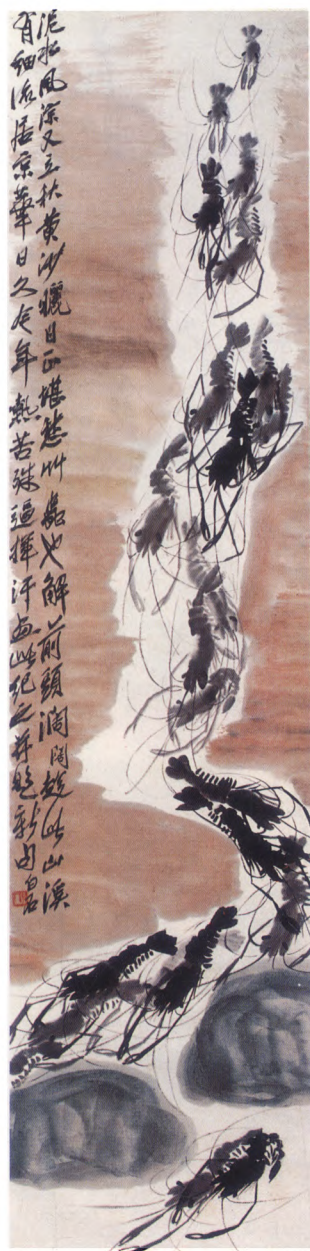 泥水風深又立秋黃沙曬日正堪愁艸蟲也解前頭濶闊趁此山溪
有細流居京華日久今年熱苦殊逼揮汗畫此紀之并題新句白石